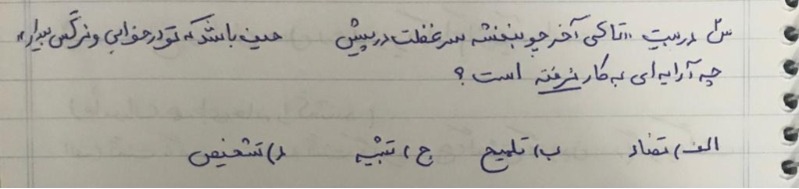 س٢ در بیت "تا کی آخر چو بنفشه سر غفلت در پیش حیف باشد که تو در خوابی و نرگس بیدار"
چه آرایه ای به کار نرفته است؟
الف) تضاد ب) تلمیح ج) تشبیه د) تشخیص